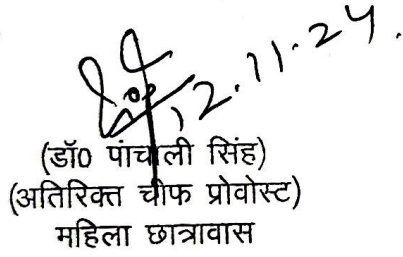 12.11.24.
(डॉ0 पांचाली सिंह)
(अतिरिक्त चीफ प्रोवोस्ट)
महिला छात्रावास